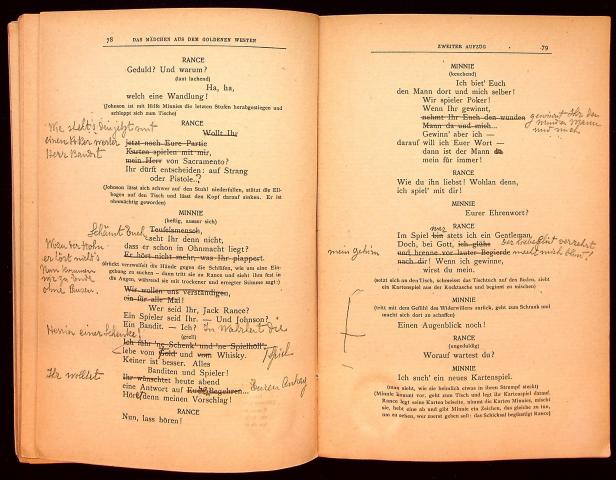 78 DAS MÄDCHEN AUS DEM GOLDENEN WESTEN
RANCE
Geduld? Und warum?
(laut lachend)
Ha, ha,
welch eine Wandlung!
(Johnson ist mit Hilfe Minnies die letzten Stufen herabgestiegen und
schleppt sich zum Tische)
RANCE
Wollt Ihr
jetzt noch Eure Partie
Karten spielen mit mir,
mein Herr von Sacramento?
Ihr dürft entscheiden: auf Strang
oder Pistole..?
(Johnson lässt sich schwer auf den Stuhl niederfallen, stützt die Ell-
bogen auf den Tisch und lässt den Kopf darauf sinken. Er ist
ohnmächtig geworden)
MINNIE
(heftig, ausser sich)
Schämt Euch
Teufelsmensch,
seht Ihr denn nicht,
dass er schon in Ohnmacht liegt?
Er hört nicht mehr, was Ihr plappert.
(drückt verzweifelt die Hände gegen die Schläfen, wie um eine Ein-
gebung zu suchen – dann tritt sie an Rance und sieht ihm fest in
die Augen, während sie mit trockener und erregter Stimme sagt:)
Wir wollen uns verständigen,
ein für alle Mal!
Wer seid Ihr, Jack Rance?
Ein Spieler seid Ihr. — Und Johnson?
Ein Bandit. — Ich? In Wahrheit die
(grell)
Herrin einer Schenke!
Ich führ 'ne Schenk' und 'ne Spielhöll',
lebe vom Gold und vom Whisky.
Spiel
Keiner ist besser. Alles
Banditen und Spieler!
Ihr wolltet
Ihr wünschtet heute abend
eine Antwort auf
Euren Antrag
Hört denn meinen Vorschlag!
RANCE
Nun, lass hören!
ZWEITER AUFZUG 79
MINNIE
(keuchend)
Ich biet' Euch
den Mann dort und mich selber!
Wir spieler Poker!
Wenn Ihr gewinnt,
nehmt Ihr Euch den wunden
Mann da und mich...
gewinnt Ihr den
Mann
und mich
Gewinn' aber ich —
darauf will ich Euer Wort —
dann ist der Mann da
mein für immer!
RANCE
Wie du ihn liebst! Wohlan denn,
ich spiel' mit dir!
MINNIE
Eurer Ehrenwort?
RANCE
Im Spiel bin stets ich ein Gentleman.
Doch, bei Gott, ich glühe
und brenne vor lauter Begierde
nach dir! Wenn ich gewinne,
wirst du mein.
mein Gehirn
(setzt sich an den Tisch, schmeisst das Tischtuch auf den Boden, zieht
ein Kartenspiel aus der Rocktasche und beginnt es zu mischen)
MINNIE
(tritt mit dem Gefühl des Widerwillens zurück, geht zum Schrank und
macht sich dort zu schaffen)
Einen Augenblick noch!
RANCE
(ungeduldig)
Worauf wartest du?
MINNIE
Ich such' ein neues Kartenspiel.
(man sieht, wie sie heimlich etwas in ihren Strumpf steckt)
(Minnie kommt vor, geht zum Tisch und legt ihr Kartenspiel darauf.
Rance legt seine Karten beiseite, nimmt die Karten Minnies, mischt
sie, hebt eine ab und gibt Minnie ein Zeichen, das gleiche zu tun,
um zu sehen, wer zuerst geben soll: das Schicksal begünstigt Rance)